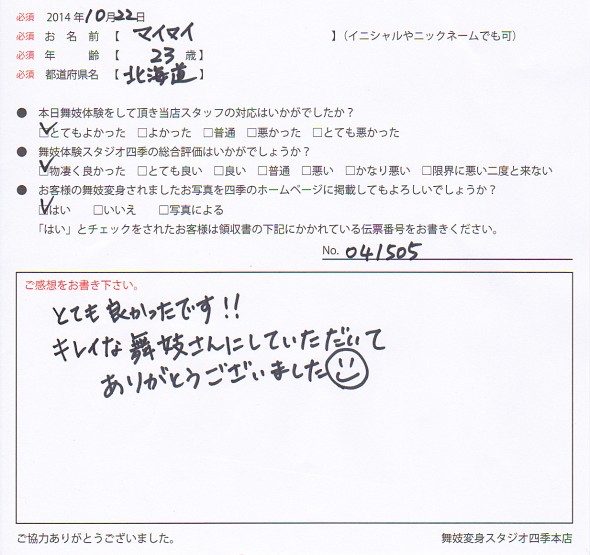 必須 2014年10月22日
必須 お名前【 マイマイ 】(イニシャルやニックネームでも可)
必須 年齢【 23 歳】
必須 都道府県名【北海道】
● 本日舞妓体験をして頂き当店スタッフの対応はいかがでしたか?
☑とてもよかった □よかった □普通 □悪かった □とても悪かった
● 舞妓体験スタジオ四季の総合評価はいかがでしょうか?
☑物凄く良かった □とても良い □良い □普通 □悪い □かなり悪い □限界に悪い二度と来ない
● お客様の舞妓変身されましたお写真を四季のホームページに掲載してもよろしいでしょうか?
☑はい □いいえ □写真による
「はい」とチェックをされたお客様は領収書の下記にかかれている伝票番号をお書きください。
No. 041505
ご感想をお書き下さい。
とても良かったです!!
キレイな舞妓さんにしていただいて
ありがとうございました
ご協力ありがとうございました。 舞妓変身スタジオ四季本店